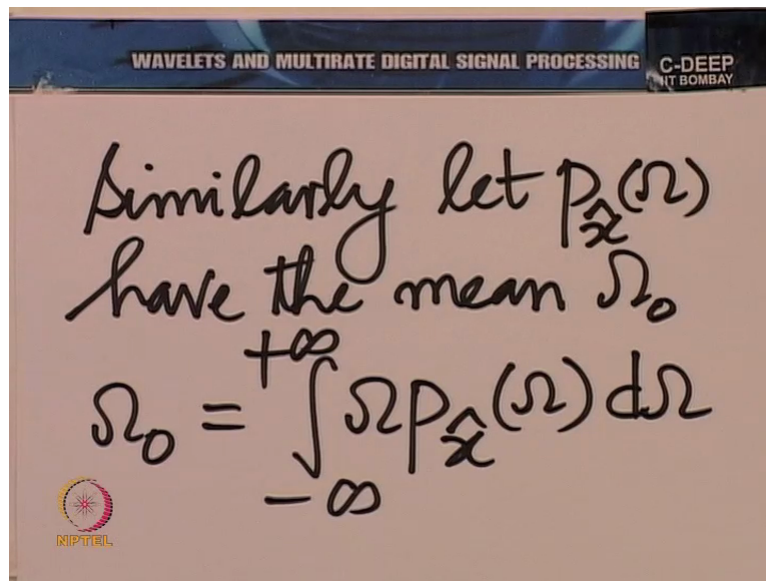 WAVELETS AND MULTIRATE DIGITAL SIGNAL PROCESSING
C-DEEP
IIT BOMBAY
Similarly let p_{\hat{x}}(Ω)
have the mean Ω₀
Ω₀ = ∫_{-∞}^{+∞} Ω p_{\hat{x}}(Ω) dΩ
NPTEL